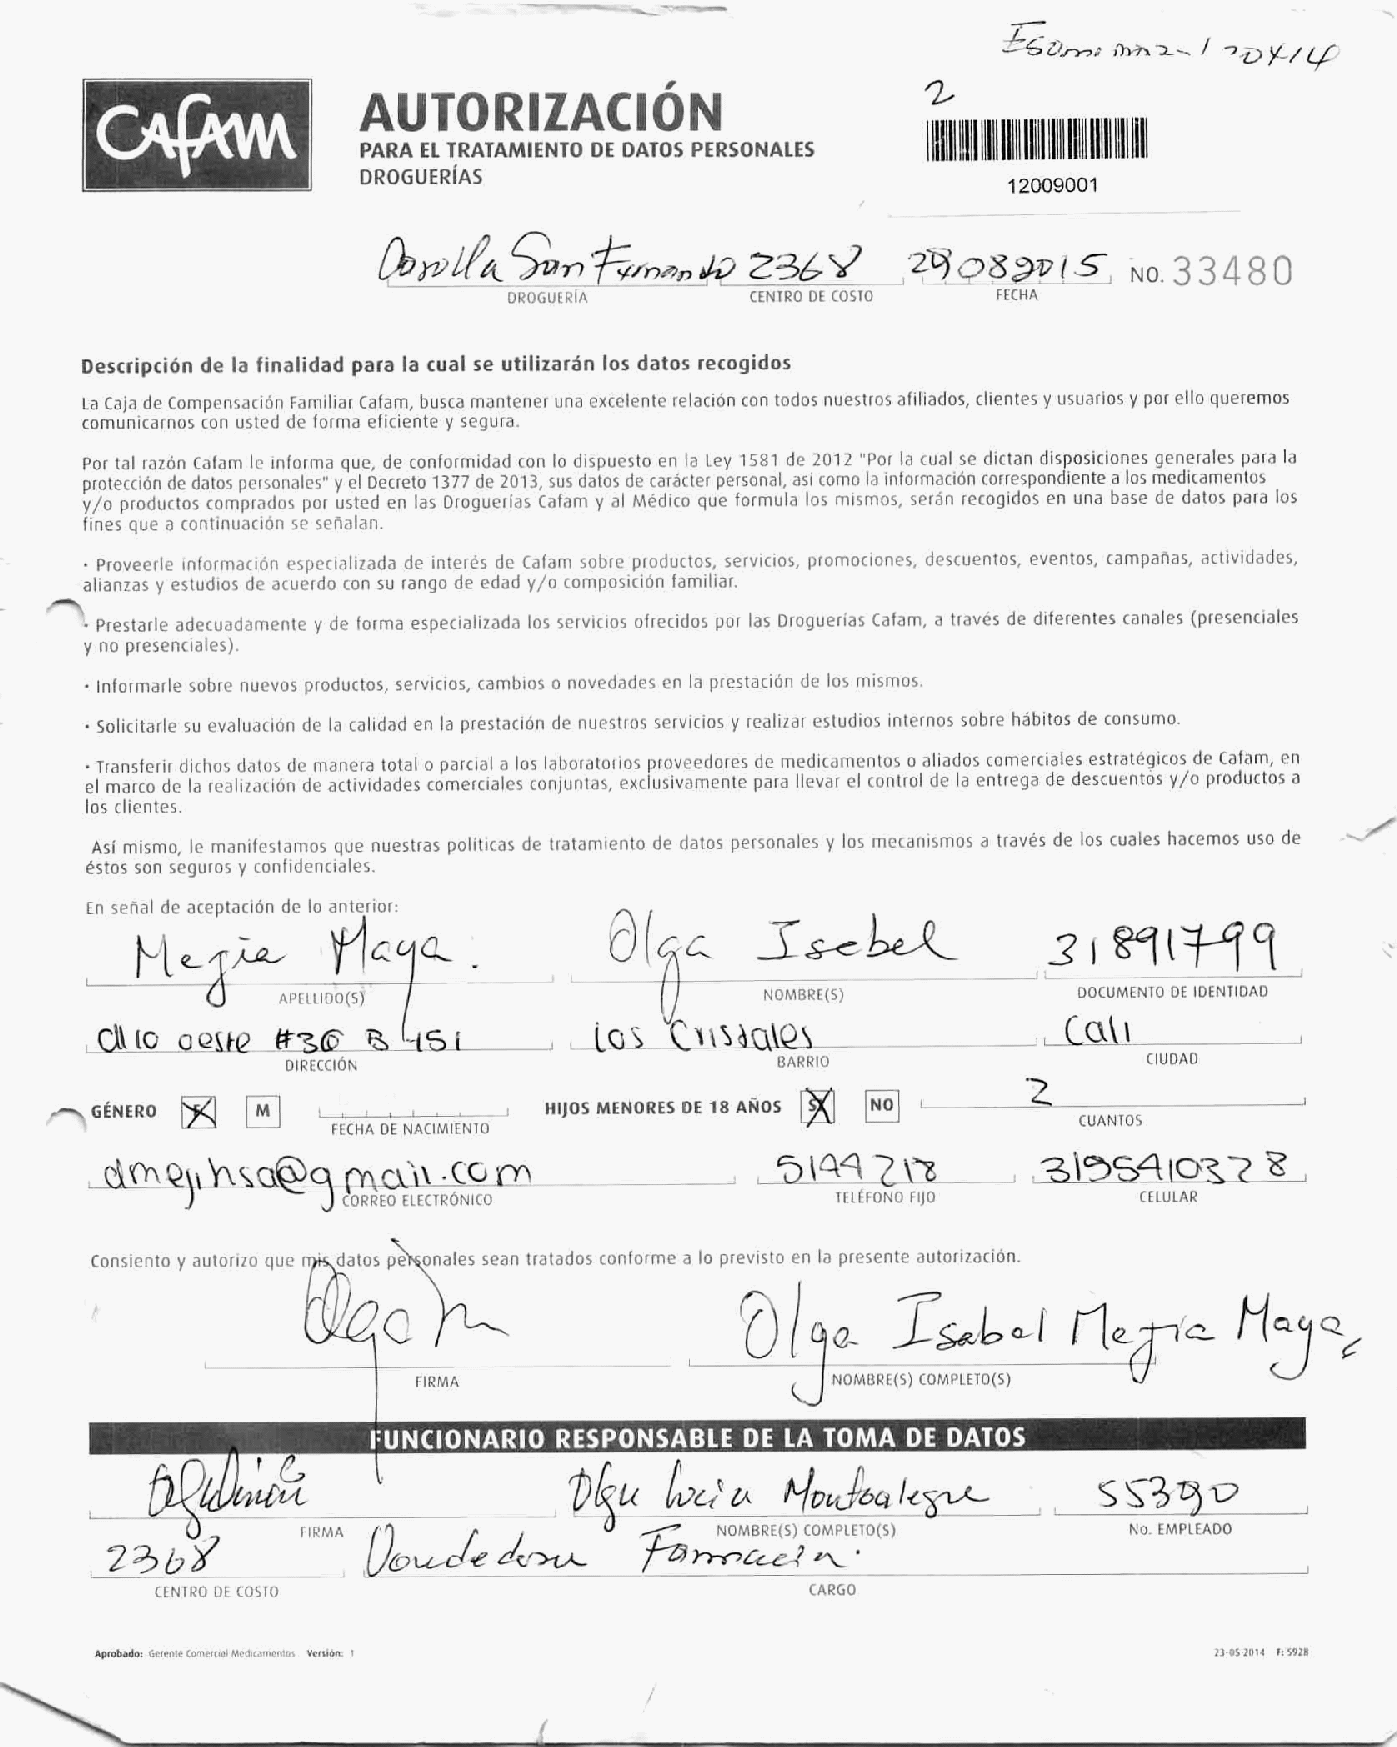 2
CAFAM
AUTORIZACIÓN
PARA EL TRATAMIENTO DE DATOS PERSONALES
DROGUERÍAS
12009001
San Fernando 2368 29082015 NO. 33480
DROGUERÍA CENTRO DE COSTO FECHA
Descripción de la finalidad para la cual se utilizarán los datos recogidos
La Caja de Compensación Familiar Cafam, busca mantener una excelente relación con todos nuestros afiliados, clientes y usuarios y por ello queremos
comunicarnos con usted de forma eficiente y segura.
Por tal razón Cafam le informa que, de conformidad con lo dispuesto en la Ley 1581 de 2012 "Por la cual se dictan disposiciones generales para la
protección de datos personales" y el Decreto 1377 de 2013, sus datos de carácter personal, asi como la información correspondiente a los medicamentos
y/o productos comprados por usted en las Droguerías Cafam y al Médico que formula los mismos, serán recogidos en una base de datos para los
fines que a continuación se señalan.
· Proveerle información especializada de interés de Cafam sobre productos, servicios, promociones, descuentos, eventos, campañas, actividades,
alianzas y estudios de acuerdo con su rango de edad y/o composición familiar.
· Prestarle adecuadamente y de forma especializada los servicios ofrecidos por las Droguerías Cafam, a través de diferentes canales (presenciales
y no presenciales).
· Informarle sobre nuevos productos, servicios, cambios o novedades en la prestación de los mismos.
· Solicitarle su evaluación de la calidad en la prestación de nuestros servicios y realizar estudios internos sobre hábitos de consumo.
· Transferir dichos datos de manera total o parcial a los laboratorios proveedores de medicamentos o aliados comerciales estratégicos de Cafam, en
el marco de la realización de actividades comerciales conjuntas, exclusivamente para llevar el control de la entrega de descuentos y/o productos a
los clientes.
Así mismo, le manifestamos que nuestras politicas de tratamiento de datos personales y los mecanismos a través de los cuales hacemos uso de
éstos son seguros y confidenciales.
En señal de aceptación de lo anterior:
Megia Maya. Olga Isabel 31891799
APELLIDO(S) NOMBRE(S) DOCUMENTO DE IDENTIDAD
Cll 10 oeste #36 B 451 los Cristales Cali
DIRECCIÓN BARRIO CIUDAD
GÉNERO F M HIJOS MENORES DE 18 AÑOS SI NO 2
FECHA DE NACIMIENTO CUANTOS
dmejihsa@gmail.com 5144218 3195410328
CORREO ELECTRÓNICO TELÉFONO FIJO CELULAR
Consiento y autorizo que mis datos personales sean tratados conforme a lo previsto en la presente autorización.
Olga M Olga Isabel Megia Maya
FIRMA NOMBRE(S) COMPLETO(S)
FUNCIONARIO RESPONSABLE DE LA TOMA DE DATOS
Olga Lucia Montealegre 55390
FIRMA NOMBRE(S) COMPLETO(S) No. EMPLEADO
2368 Vendedora Farmacia.
CENTRO DE COSTO CARGO
Aprobado: Gerente Comercial Medicamentos Versión: 1 23-05 2014 F: 5928